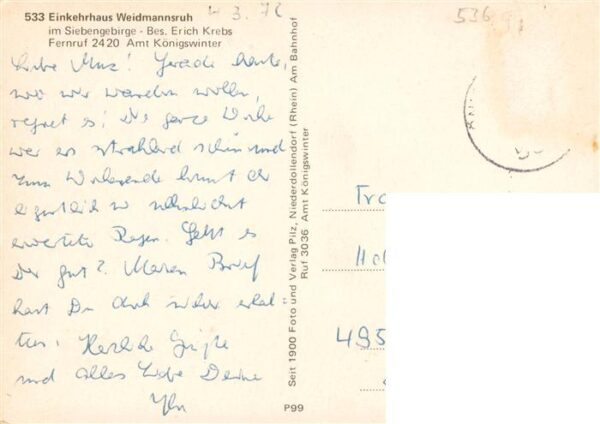 4.3.72
536
533 Einkehrhaus Weidmannsruh
im Siebengebirge - Bes. Erich Krebs
Fernruf 2420 Amt Königswinter
Liebe Mus! Gerade heute,
wo wir wandern wollen,
regnet es! Die ganze Woche
war es strahlend schön und
zum Wochenende kommt der
eigentlich so sehnlichst
erwartete Regen. Geht es
Dir gut? Meinen Brief
hast Du doch sicher erhal-
ten. Herzliche Grüße
und alles Liebe Deine
Seit 1900 Foto und Verlag Pilz, Niederdollendorf (Rhein) Am Bahnhof
Ruf 3036 Amt Königswinter
P99
Fra
495